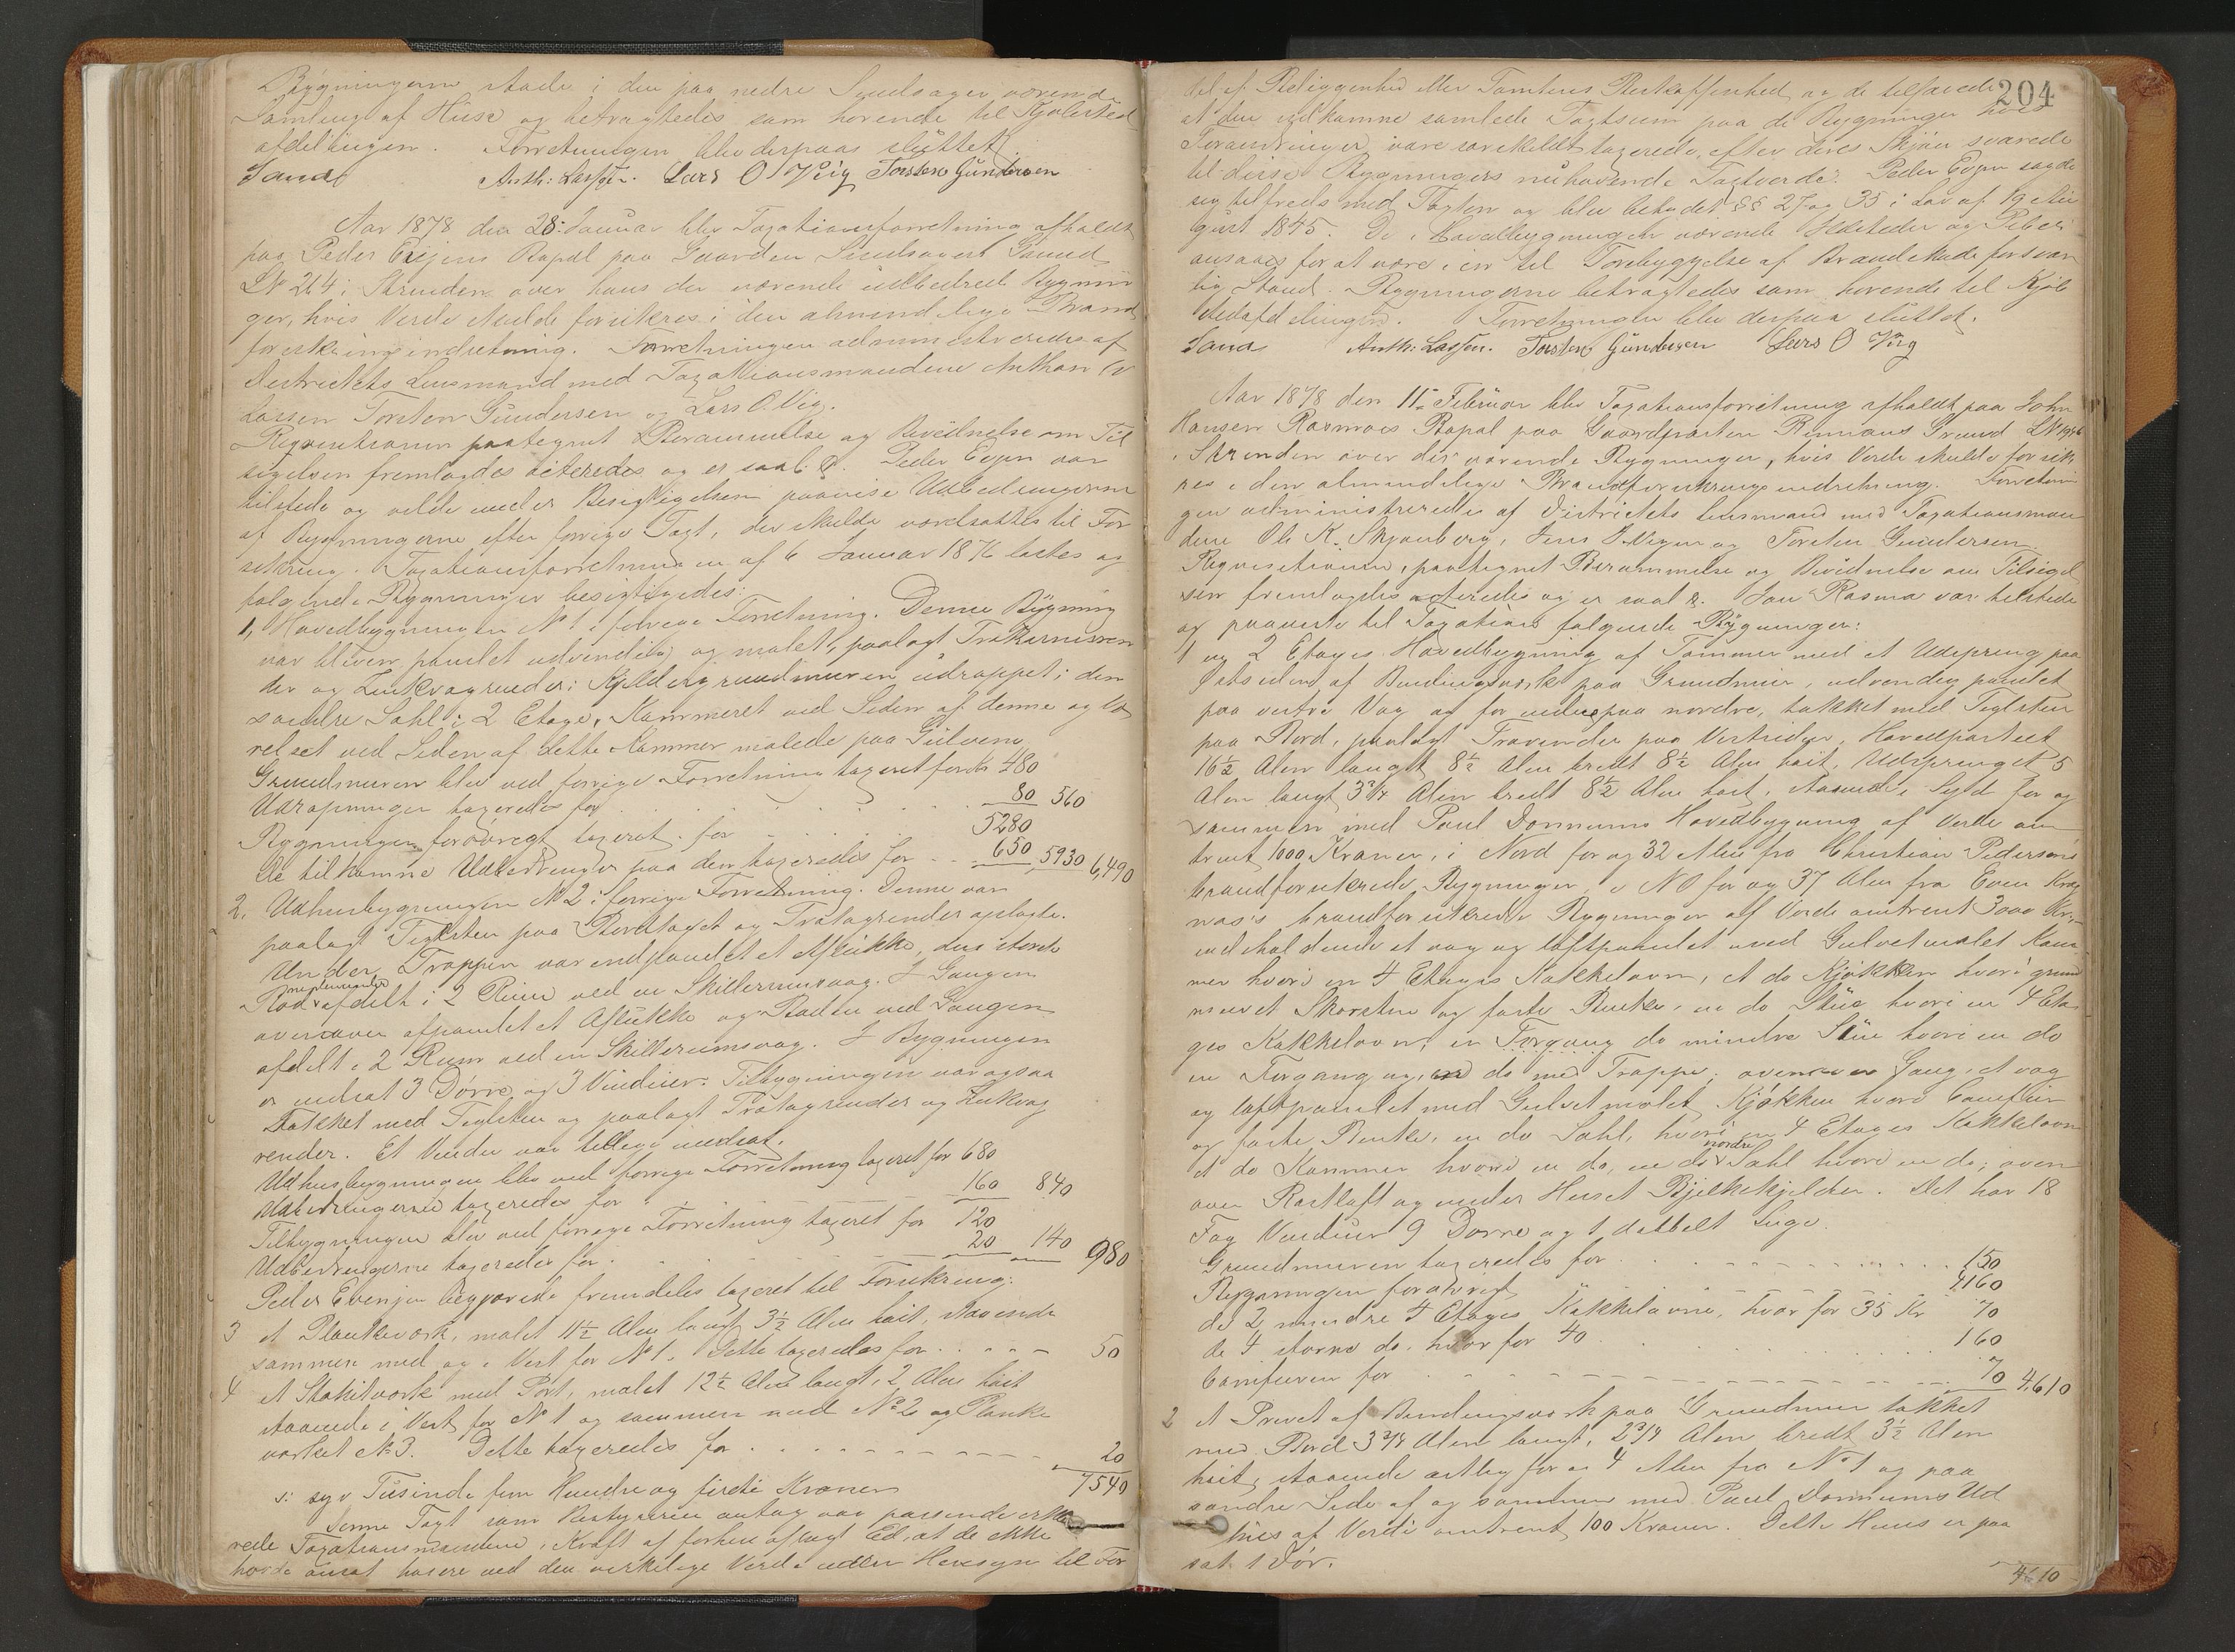 Bygningerne stode i den paa nedre Sundsager værende
Samling af Huse og betragtedes som hørende til Kjøbsted
afdelingen. Forretningen blev derpaa sluttet.
Sand Anth: Lassen. Lars O Vig Torsten Gundersen
Aar 1878 den 28: Januar blev Taxationsforretning afholdt
paa Peder Evjens Bopæl paa Gaarden Grund
LN 264 i Skrinden over hans der værende udbedrede Bygnin
ger, hvis Verdi skulde forsikres i den almindelige Brand
forsikringsindretning. Forretningen administreredes af
Destriktets Lensmand med Taxationsmændene Anthon
Lassen Torsten Gundersen og Lars O. Vig.
Requisitionen paategnet Berammelse og Bevidnelse om Til
sigelsen fremlagdes acteredes og er saal. Peder Evjen var
tilstede og vilde under Besigtigelsen paavise Udbedringerne
af Bygningerne efter forrige Taxt, der skulde værdsættes til For
sikring. Taxationsforretningen af 6 Januar 1876 læstes og
følgende Bygninger besigtigedes:
1, Hovedbygningen N 1 i forrige Forretning. Denne Bygning
var bleven panelet udvendig og malet, paalagt
der og Kjeldergrundmuren udrappet; den
søndre Sahl i 2 Etage, Kammeret ved Siden af denne og Væ
relset ved Siden af dette Kammer malede paa Gulvene
Grundmuren blev ved forrige Forretning taxeret for Kr 480
Udrapningen taxeredes for 80 560
Bygningen forøvrigt taxerat for 5280
De tilkomne Udbedringer paa den taxeredes for 650 5930 6,490
2, Udhusbygningen N 2 i forrige Forretning. Denne var
paalagt Teglsten paa Bordtaget og Trætagrender oplagte.
Under Trappen var indpanelet et Aflukke, den store
Bod nedenunder afdelt i 2 Rum ved en Skillerumsvæg. I Gangen
ovenover afpanelet et Aflukke og Boden ved Gangen
afdelt i 2 Rum ved en Skillerumsvæg. I Bygningen
er indsat 3 Dörre og 3 Vinduer. Tilbygningen var ogsaa
Takket med Teglsten og paalagt Trætagrender og
render. Et Vindu var tillige indsat.
Udhusbygningen blev ved forrige Forretning taxeret for 680
Udbedringerne taxeredes for 160 840
Tilbygningen blev ved forrige Forretning taxeret for 120
Udbedringerne taxeredes for. 20 140 980
Peder Evenjen begjærede fremdeles taxeret til Forsikring:
3 et Plankeværk, malet 11½ Alen langt 3½ Alen høit, staaende
sammen med og i Vest for N 1. Dette taxeredes for 50
4 et Stakitværk med Port, malet 12½ Alen langt, 2 Alen høit
staaende i Vest for N 1 og sammen med N 2 og Planke
værket N 3. Dette taxeredes for 20
7540
s: syv Tusinde fem Hundre og firti Kroner
Denne Taxt som Bestyreren antog var passende erklæ
rede Taxationsmændene i Kraft af forhen aflagt Ed, at de ikke
havde ansat høiere end den virkelige Verdi uden Hensyn til For
204
del af Beliggenhed eller Tomtens Beskaffenhed og de tilføiede
at den udkomne samlede Taxtsum paa de Bygninger hvis
Forandringer vare særskildt taxerede, efter deres Skjøn svarede
til disse Bygningers nuhavende Taxtverdi. Peder Evjen sagde
sig tilfreds med Taxten og blev betydet §§ 27 og 35 i Lov af 19 Au
gust 1845. De i Hovedbygningen værende Ildsteder og Piber
ansaaes for at være i en til Forebyggelse af Brandskade forsvar
lig Stand. Bygningerne betragtedes som hørende til Kjøb
stedafdelingen. Forretningen blev derpaa sluttet.
Sand Anth: Lassen. Torsten Gundersen Lars O Vig
Aar 1878 den 11 Februar blev Taxationsforretning afholdt paa John
Hansen Rasmoes Bopæl paa Gaardparten Grund LN 19
i Skrinden over der værende Bygninger, hvis Verdi skulde forsik
res i den almindelige Brandforsikringsindretning. Forretnin
gen administreredes af Districtets Lensmand med Taxationsmæn
dene Ole K. Skjønberg, Jens og Torsten Gundersen.
Requisitionen, paategnet Berammelse og Bevidnelse om Tilsigel
sen fremlagdes acteredes og er saal. Jon Rasmo var tilstede
og paaviste til Taxation følgende Bygninger:
1 en 2 Etages Hovedbygning af Tømmer med et Udspring paa
Østsiden af Bindingsværk paa Grundmur, udvendig panelet
paa vestre Væg og for nedre paa nordre, tækket med Teglsten
paa Bord, paalagt paa Vestsiden, Hovedpartiet
16½ Alen langt 8½ Alen bredt 8½ Alen høit, Udspringet 5
Alen langt 3¾ Alen bredt 8½ Alen høit, staaende i Syd for og
sammen med Paul Domnums Hovedbygning af Verdi om
trent 1000 Kroner, i Nord for og 32 Alen fra Christian Pedersens
brandforsikrede Bygninger, i NO for og 37 Alen fra Even
brandforsikrede Bygninger af Verdi omtrent 3000 Kr.
indeholdende et væg og loftpanelet med Gulvet malet Kam
mer hvori en 4 Etages Kakkelovn, et do Kjøkken hvori grund
muret Skorsten og faste Benke, en do Stue hvori en 4 Eta
ges Kakkelovn, en Forgang do mindre Stue hvori en do
en Forgang og, do med Trappe; ovenover Gang, et væg
og loftpanelet med Gulvet malet Kjøkken hvori Comfuir
og faste Benke, en do Sahl, hvori en 4 Etages Kakkelovn
et do Kammer hvori en do, en do nordre Sahl hvori en do; oven
over Røstloft og under Huset Bjelkekjelder. Det har 18
Fag Vinduer 9 Dørre og 1 dobbelt Luge.
Grundmuren taxeredes for 150
Bygningen forøvrigt 4160
de 2 mindre 4 Etages Kakkelovne, hvær for 35 Kr 70
de 4 større do. hvær for 40 160
Comfuren for 70 4,610
2 et Privet af Bindingsværk paa Grundmur tækket
med Bord 3¾ Alen langt, 2¾ Alen bredt 3½ Alen
høit, staaende østlig for og 4 Alen fra N 1 og paa
søndre Side af og sammen med Paul Domnums Ud
hus af Verdi omtrent 100 Kroner. Dette Huus er paa
sat 1 Dør.
4610